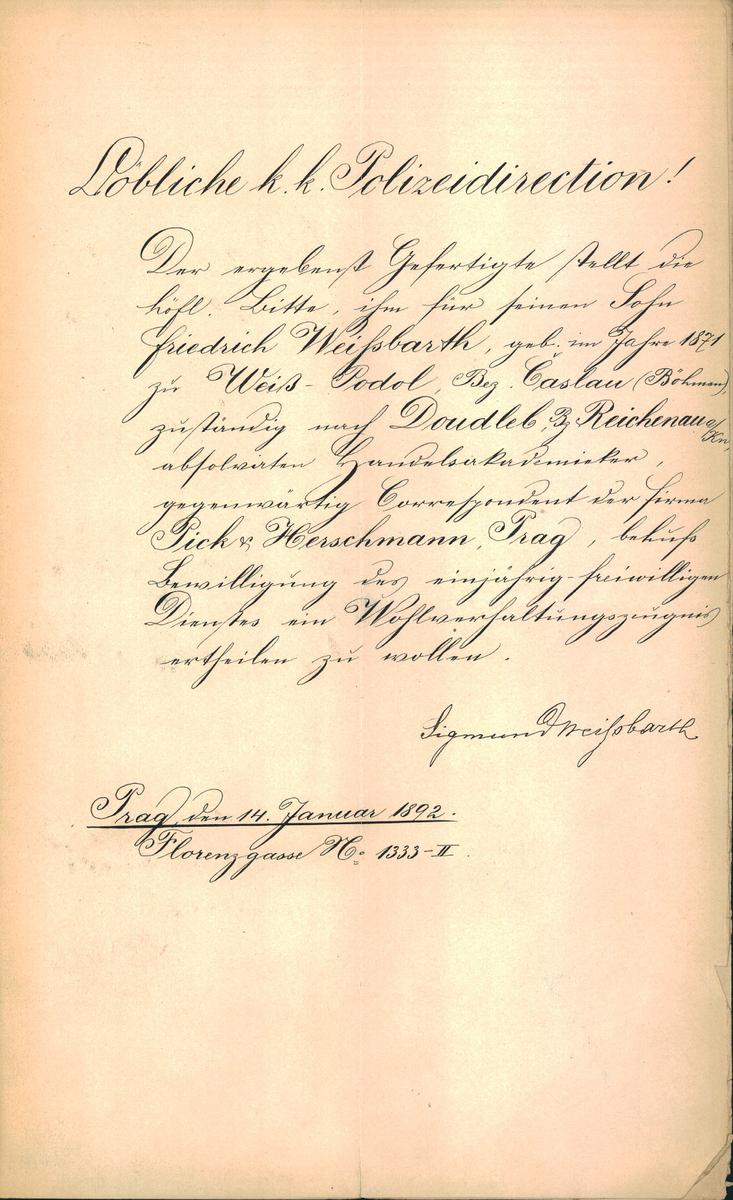 Löbliche k. k. Polizeidirection!
Der ergebenst Gefertigte stellt die
höfl. Bitte, ihm für seinen Sohn
Friedrich Weißbarth, geb. im Jahre 1871
zu Weiß-Podol, Bez. Časlau (Böhmen),
zuständig nach Doudleb, Bz. Reichenau a/Kn,
absolvirten Handelsakademiker,
gegenwärtig Correspondent der Firma
Pick & Herschmann, Prag, behufs
Bewilligung des einjährig-freiwilligen
Dienstes ein Wohlverhaltungszeugnis
ertheilen zu wollen.
Sigmund Weißbarth
Prag, den 14. Januar 1892.
Florenzgasse No. 1333-II.